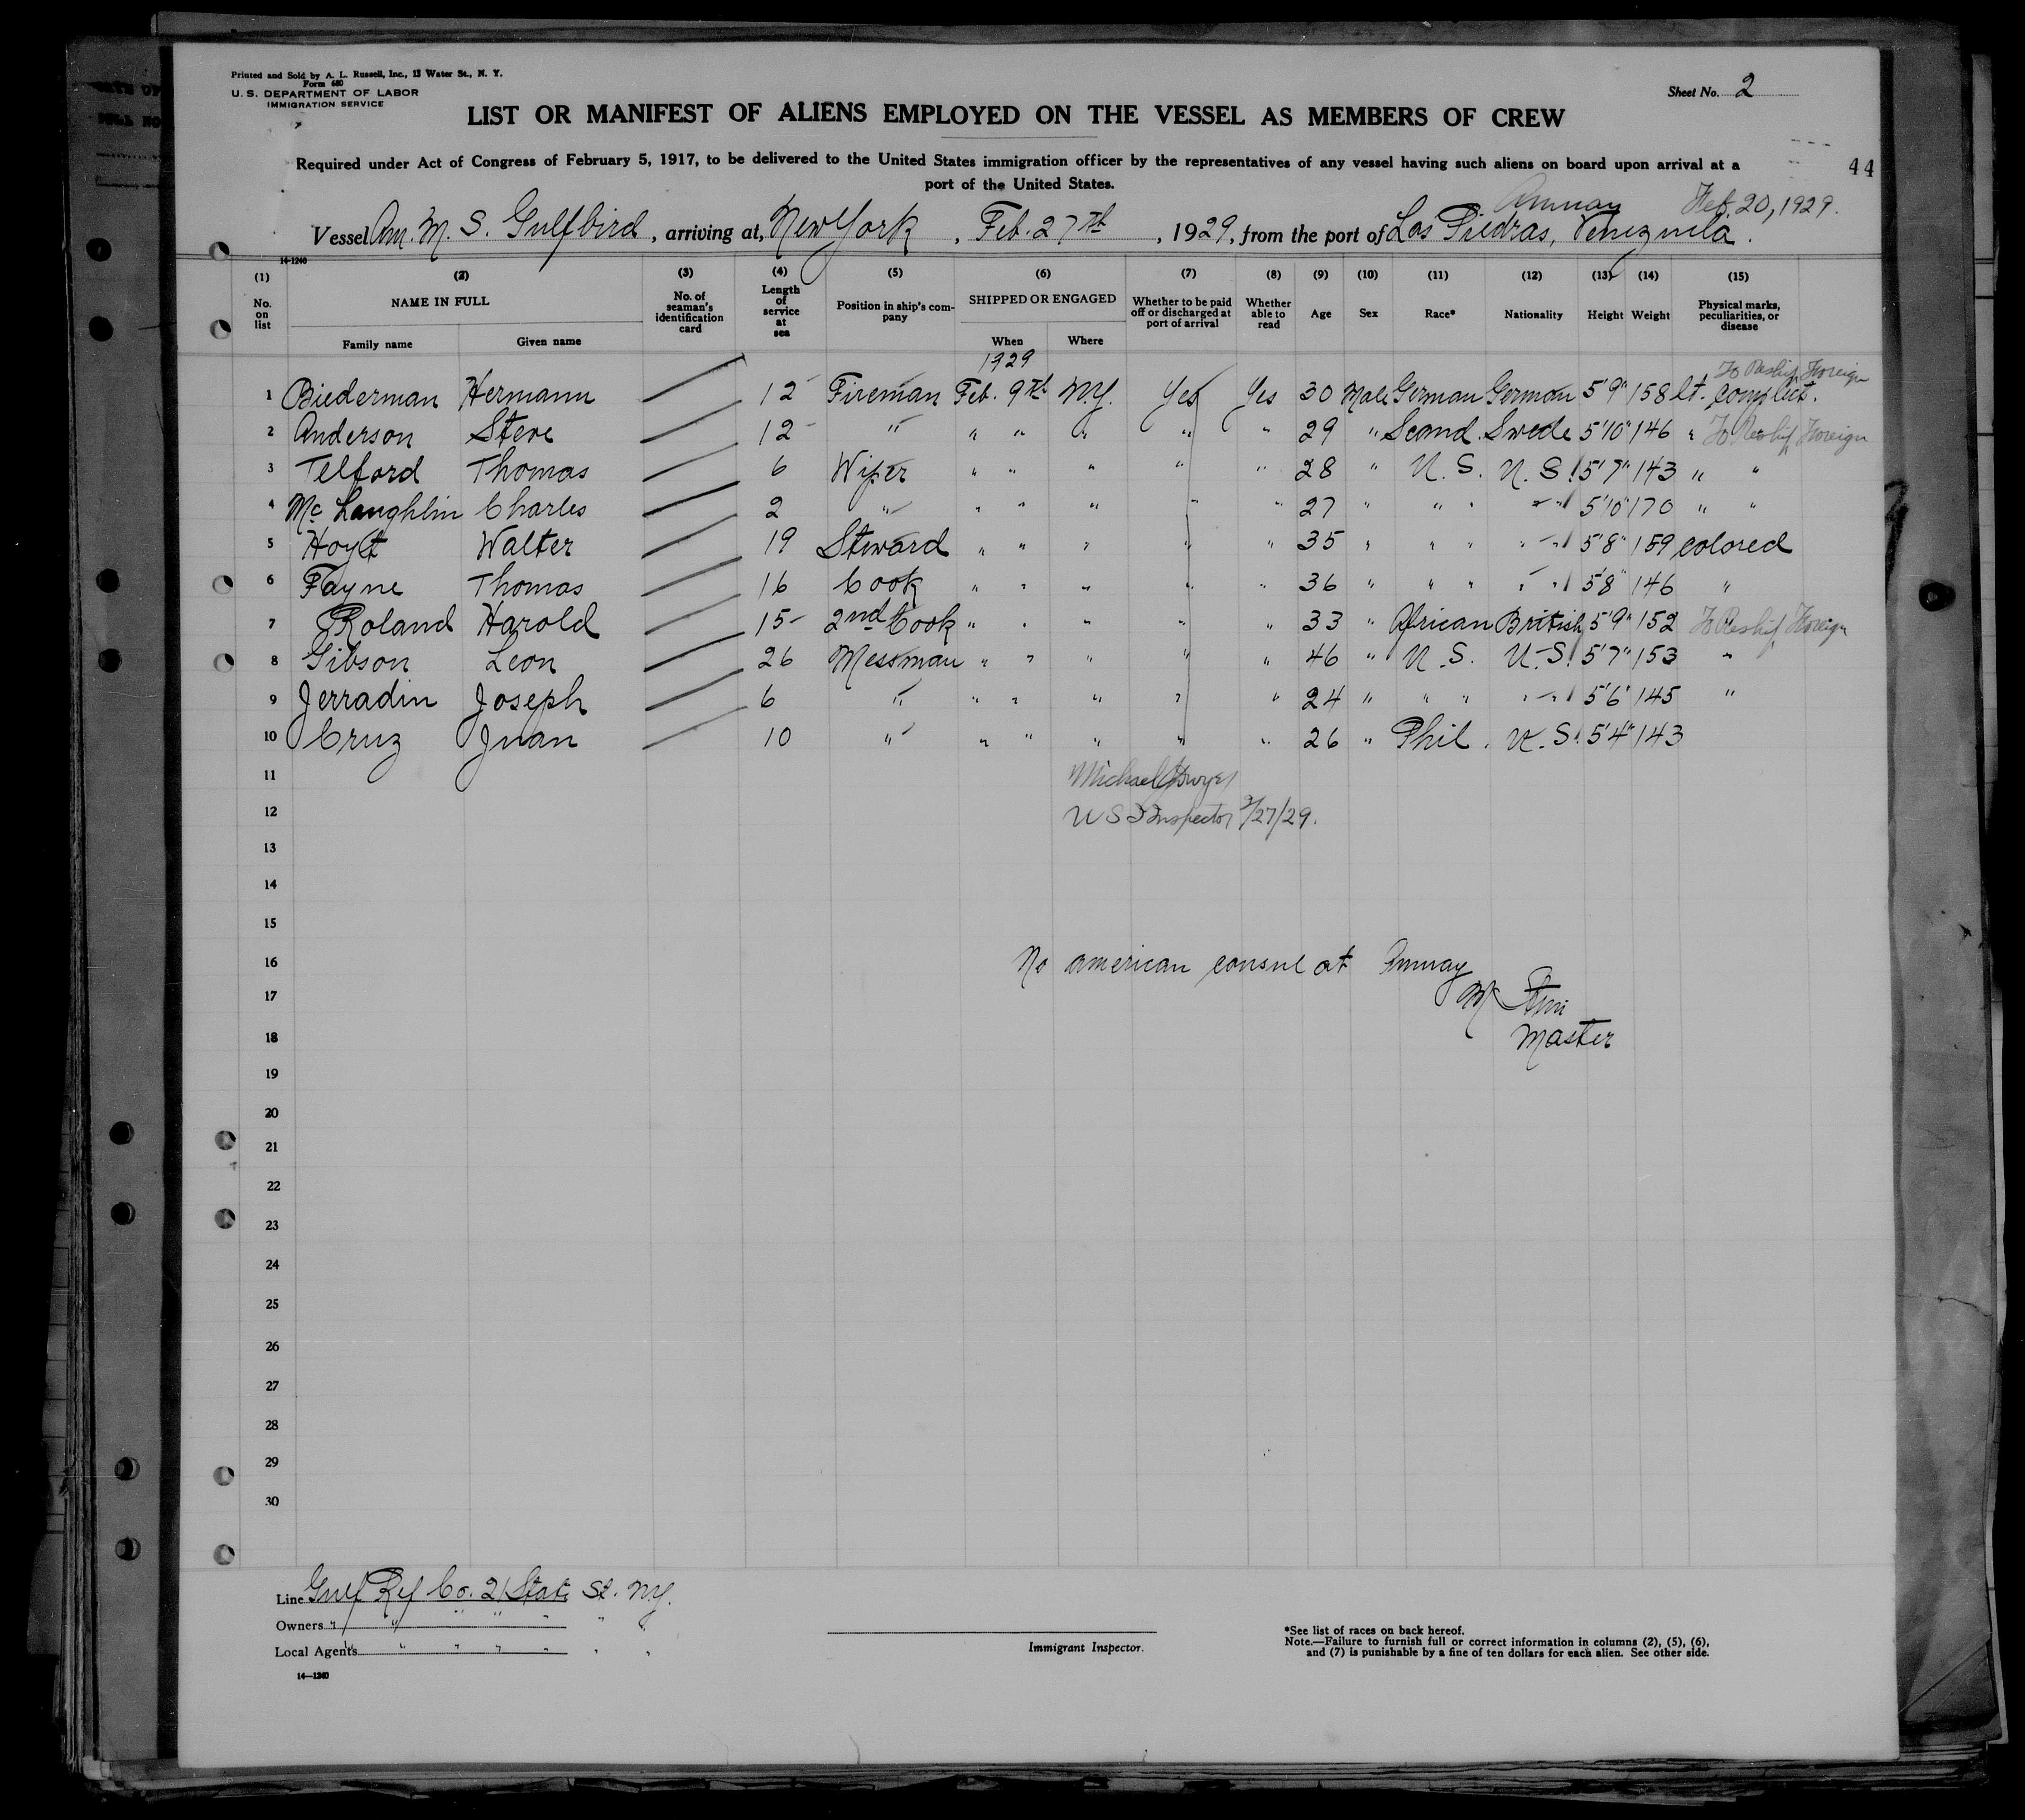 Printed and Sold by A. L. Russell, Inc., 13 Water St., N. Y.
Form 680
U. S. DEPARTMENT OF LABOR
IMMIGRATION SERVICE
Sheet No. 2
LIST OR MANIFEST OF ALIENS EMPLOYED ON THE VESSEL AS MEMBERS OF CREW
Required under Act of Congress of February 5, 1917, to be delivered to the United States immigration officer by the representatives of any vessel having such aliens on board upon arrival at a
port of the United States.
44
Amuay Feb. 20, 1929.
Vessel Am. M. S. Gulfbird, arriving at, New York, Feb. 27th, 1929, from the port of Las Piedras, Venezuela.
14-1240
(1) (2) (3) (4) (5) (6) (7) (8) (9) (10) (11) (12) (13) (14) (15)
No. on list NAME IN FULL No. of seaman's identification card Length of service at sea Position in ship's company SHIPPED OR ENGAGED Whether to be paid off or discharged at port of arrival Whether able to read Age Sex Race* Nationality Height Weight Physical marks, peculiarities, or disease
Family name Given name When Where
1929
To Reship Foreign
1 Biederman Hermann 12 Fireman Feb. 9th N.Y. Yes Yes 30 Male German German 5'9" 158 lt. complect.
2 Anderson Steve 12 " " " " " " 29 " Scand. Swede 5'10" 146 " To Reship Foreign
3 Telford Thomas 6 Wiper " " " " " 28 " U. S. U. S. 5'7" 143 " "
4 McLaughlin Charles 2 " " " " " " 27 " " " " " 5'10" 170 " "
5 Hoyt Walter 19 Steward " " " " " 35 " " " " " 5'8" 159 colored
6 Fayne Thomas 16 Cook " " " " " 36 " " " " " 5'8" 146 "
7 Roland Harold 15 2nd Cook " " " " " 33 " African British 5'9" 152 To Reship Foreign
8 Gibson Leon 26 Messman " " " " " 46 " U. S. U. S. 5'7" 153 "
9 Jerradin Joseph 6 " " " " " " 24 " " " " " 5'6" 145 "
10 Cruz Juan 10 " " " " " " 26 " Phil. U. S. 5'4" 143
11 Michael J Dwyer
12 U S I Inspector 2/27/29.
13
14
15
16 No american consul at Amuay
17 M
18 Master
19
20
21
22
23
24
25
26
27
28
29
30
Line Gulf Ref Co. 21 State St. N.Y.
Owners " " " " " " "
Local Agents " " " " " " "
14—1240
Immigrant Inspector.
*See list of races on back hereof.
Note.—Failure to furnish full or correct information in columns (2), (5), (6),
and (7) is punishable by a fine of ten dollars for each alien. See other side.